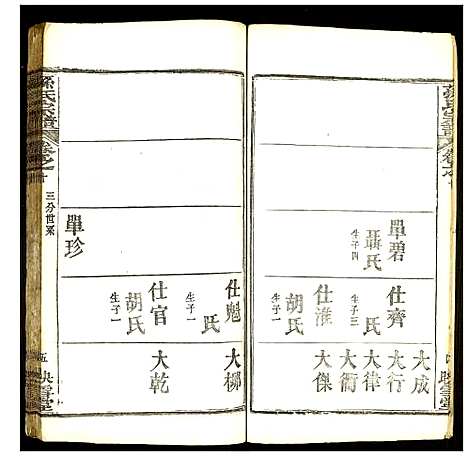 孫氏宗譜
單碧
聶氏
生子四
仕齊
生子三
仕淮
胡氏
生子一
大成
大行
大律
大衢
大傑
映雪堂
孫氏宗譜
三分世系
單珍
仕魁
氏
生子一
仕官
胡氏
生子一
大柳
大乾
五
映雪堂